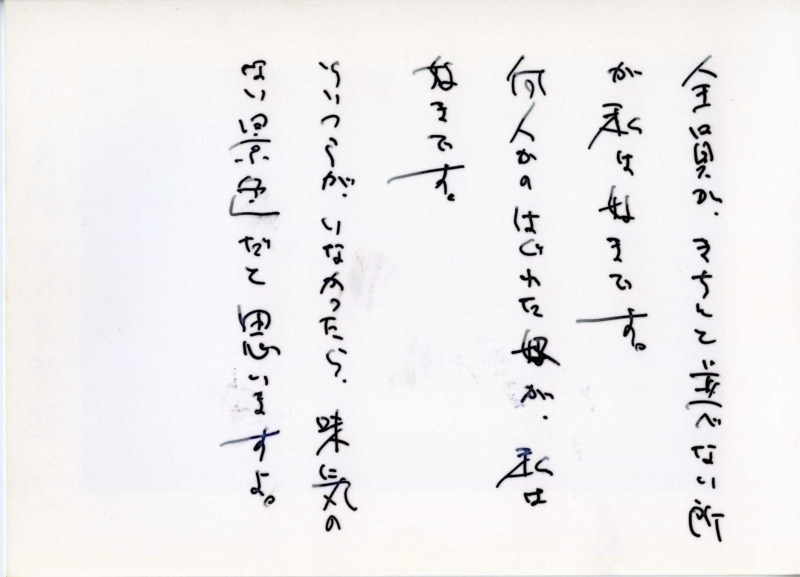 全員が、きちんと並べない所
が私は好きです。
何人かのはぐれたが、私は
好きです。
そいつらが、いなかったら、味気の
ない景色だと思いますよ。